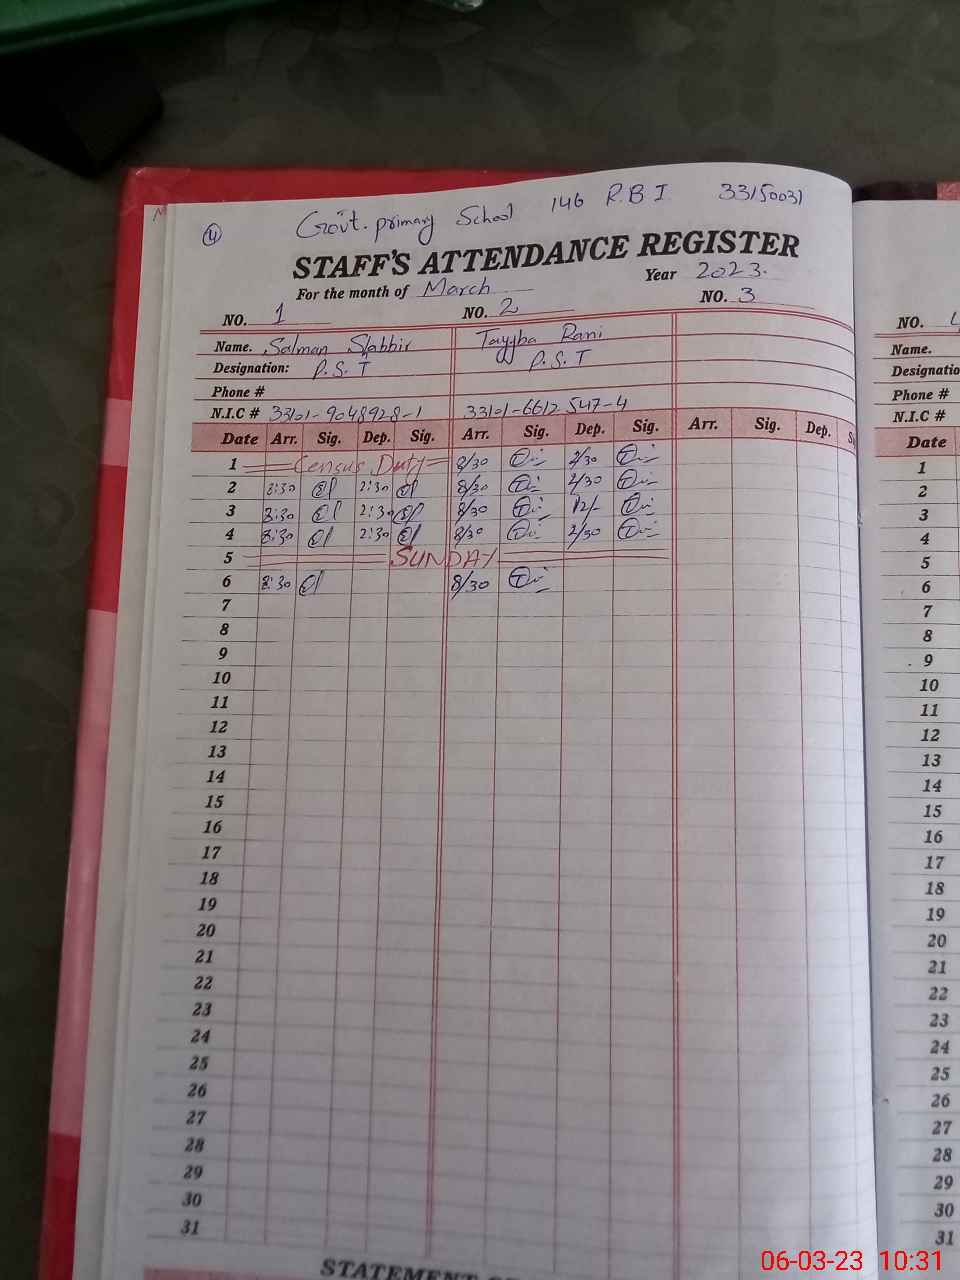 ④ Govt. primary School 146 R.B I 33150031
STAFF'S ATTENDANCE REGISTER
For the month of March Year 2023.
NO. 1 NO. 2 NO. 3
Name. Salman Shabbir Tayyba Rani
Designation: P.S.T P.S.T
Phone #
N.I.C # 33101-9048928-1 33101-6612547-4
Date Arr. Sig. Dep. Sig. Arr. Sig. Dep. Sig. Arr. Sig. Dep.
1 Census Duty 8/30 2/30
2 8:30 2:30 8/30 2/30
3 8:30 2:30 8/30 12/-
4 8:30 2:30 8/30 2/30
5 SUNDAY
6 8:30 8/30
7
8
9
10
11
12
13
14
15
16
17
18
19
20
21
22
23
24
25
26
27
28
29
30
31
STATEMENT
NO.
Name.
Designatio
Phone #
N.I.C #
Date
1
2
3
4
5
6
7
8
9
10
11
12
13
14
15
16
17
18
19
20
21
22
23
24
25
26
27
28
29
30
31
06-03-23 10:31